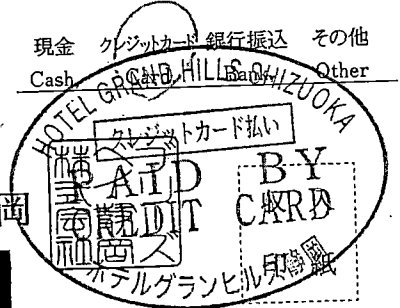 現金 クレジットカード 銀行振込 その他
Cash Card Bank Other
HOTEL GRAND HILLS SHIZUOKA
クレジットカード払い
PAID BY
CREDIT CARD
収入
印紙
岡
ホテルグランヒルズ